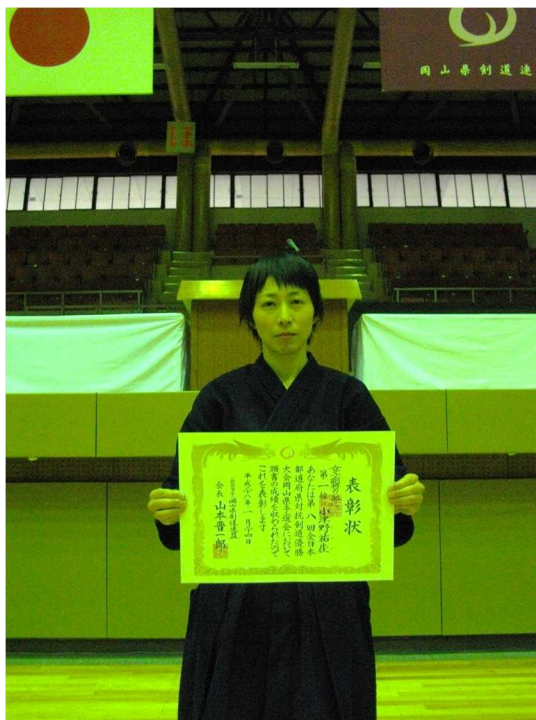 岡山県剣道連
表彰状
第一位
あなたは第八回全日本
都道府県対抗剣道優勝
大会岡山県予選会において
頭書の成績を収められたので
これを表彰します
平成二十八年一月二十四日
会長 山本晋一郎